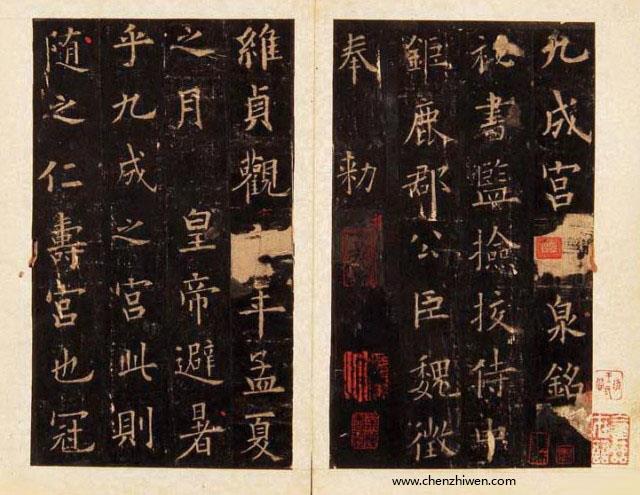 九成宮泉銘
秘書監撿挍侍中
鉅鹿郡公臣魏徵
奉勑
維貞觀年孟夏
之月皇帝避暑
乎九成之宮此則
随之仁壽宮也冠
www.chenzhiwen.com